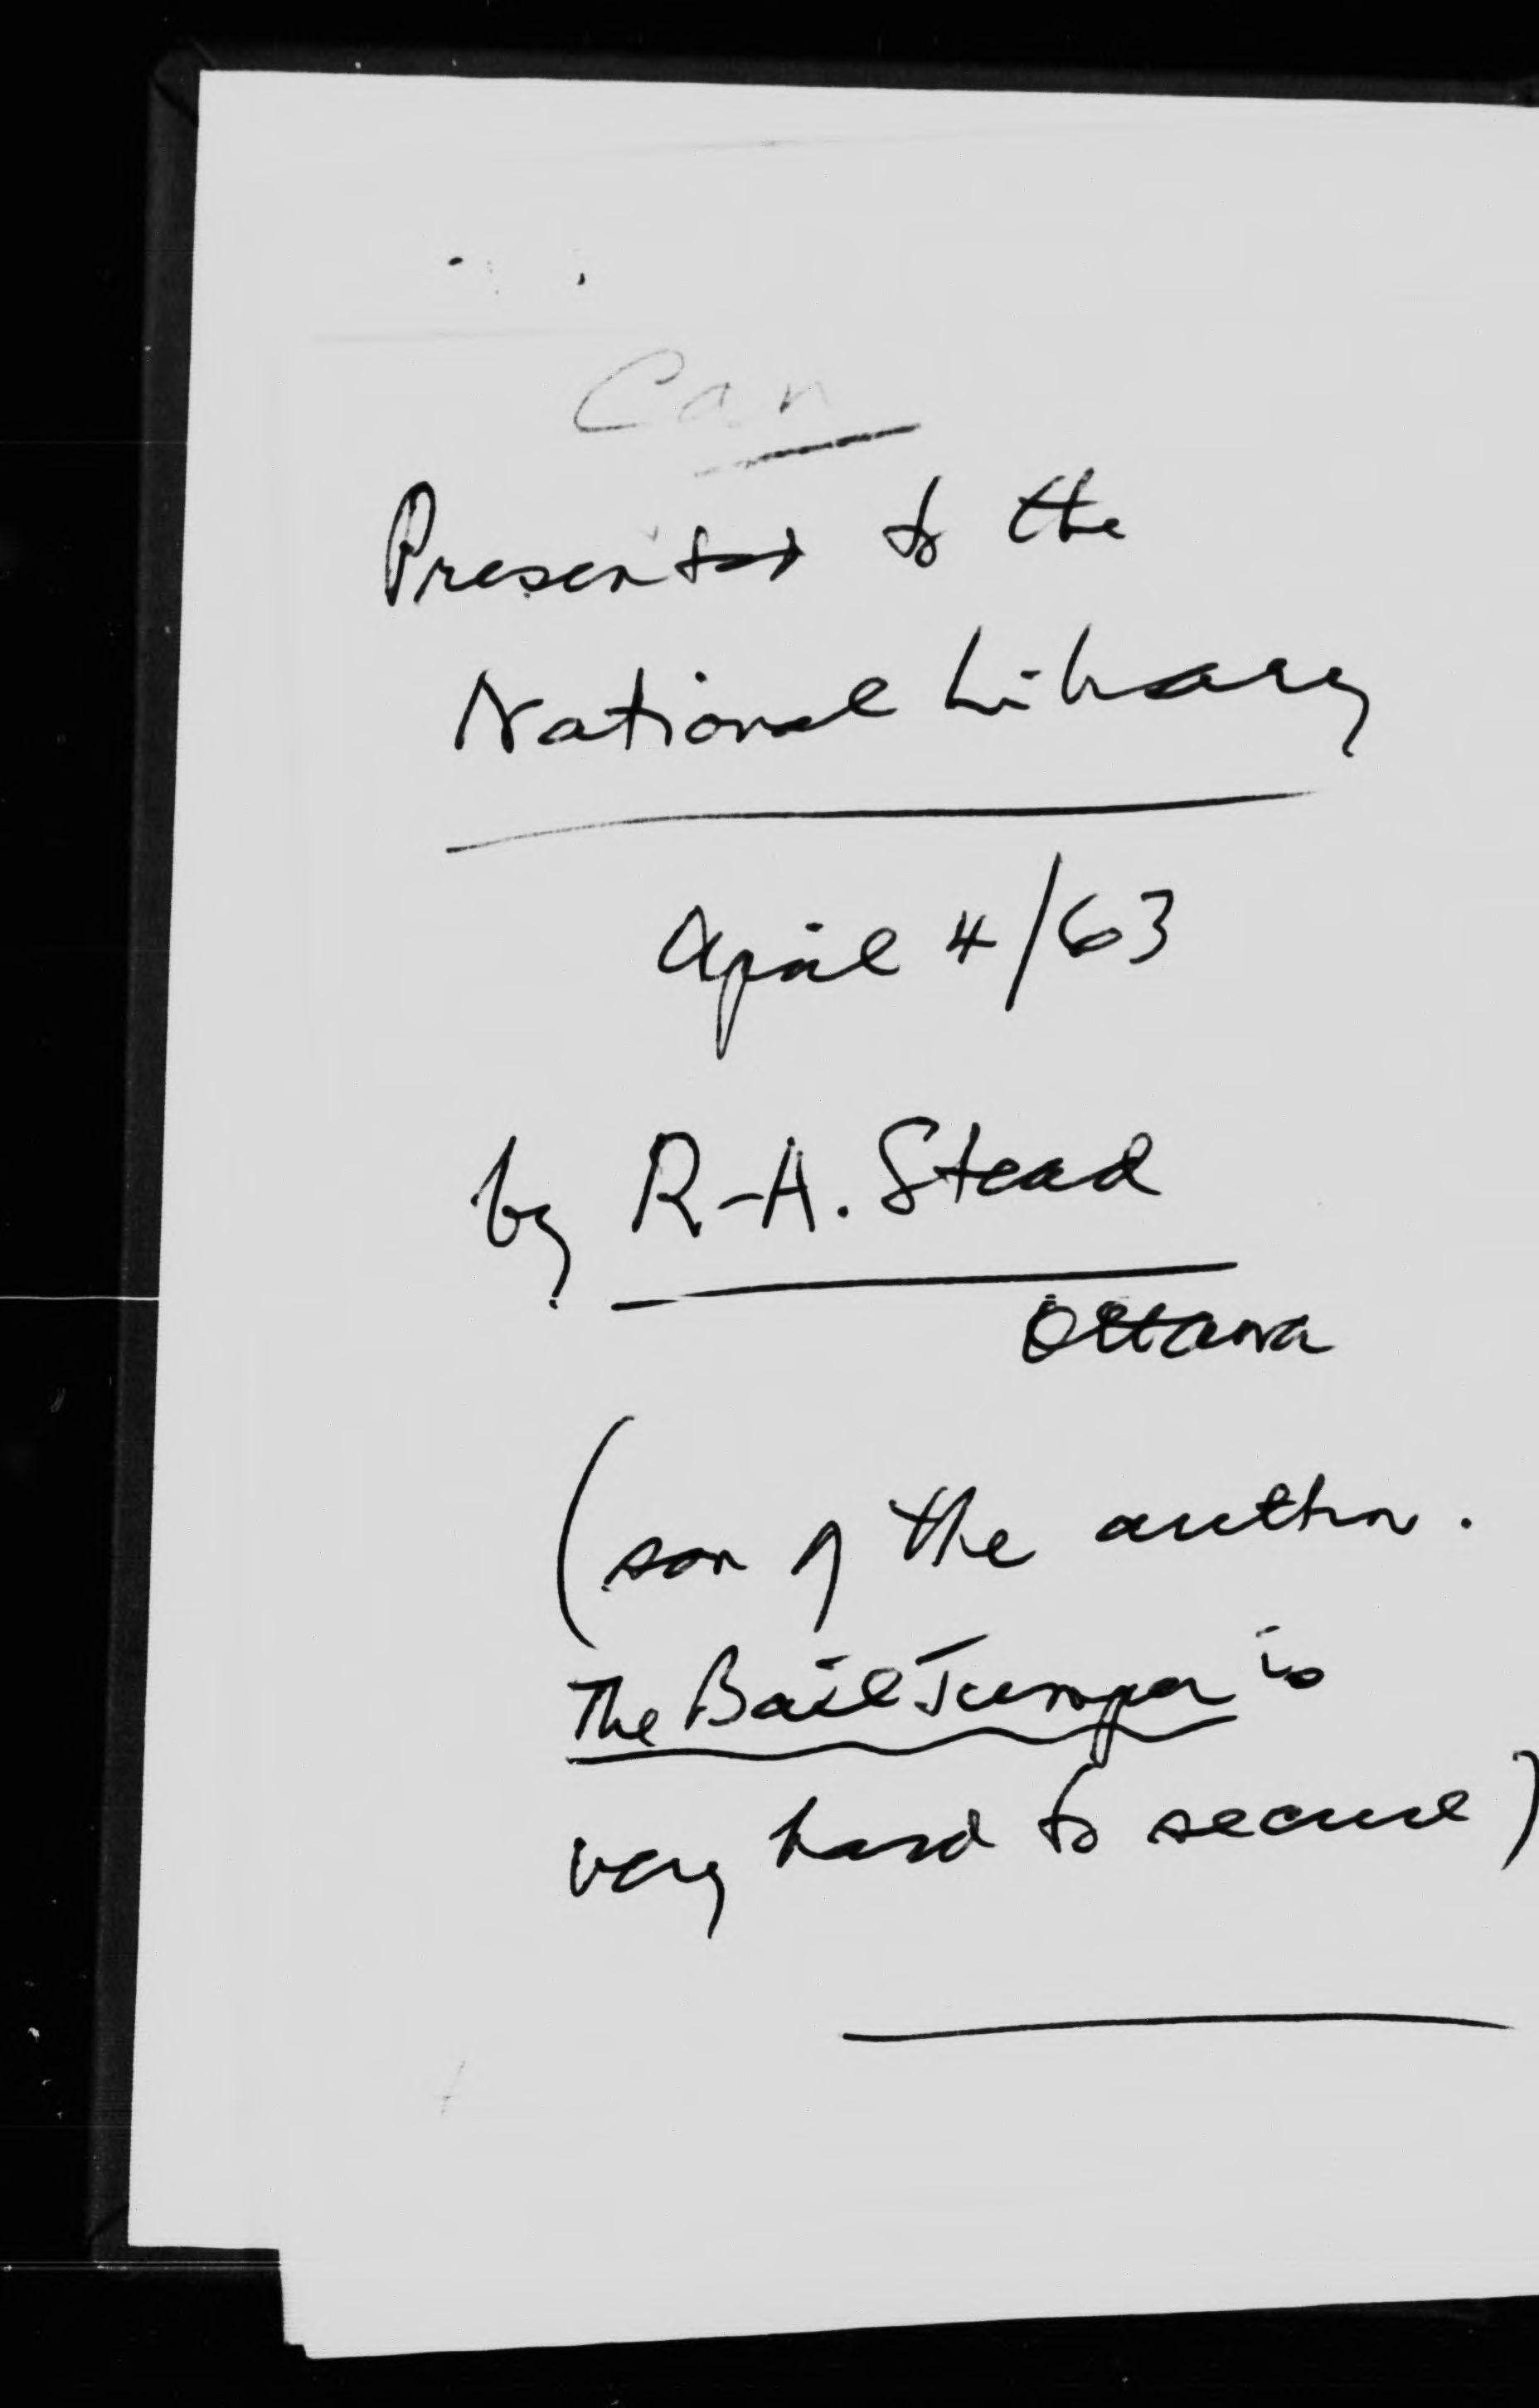 Can
Presented to the
National Library
April 4/63
by R-A. Stead
Ottawa
(son of the author.
The Bail Jumper is
very hard to secure)